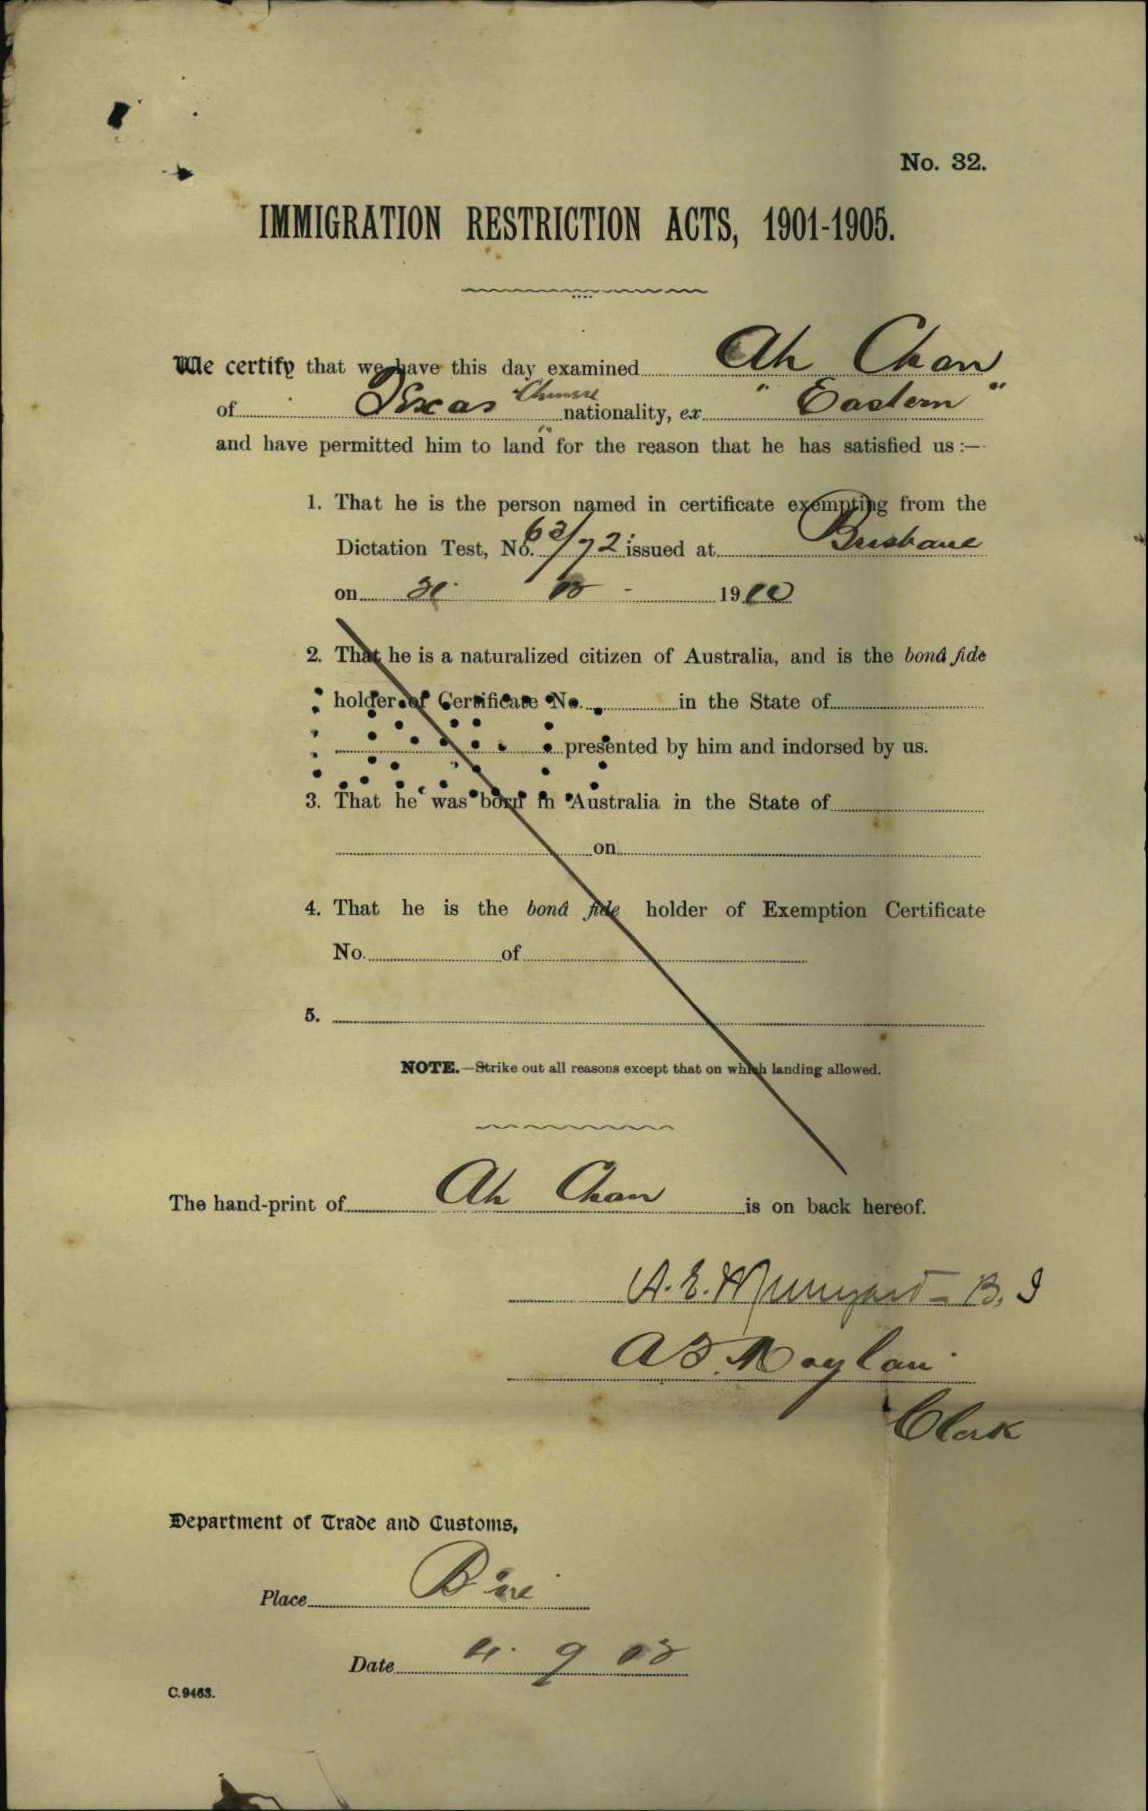 No. 32.
IMMIGRATION RESTRICTION ACTS, 1901-1905.
We certify that we have this day examined Ah Chan
of Texas Chinese nationality, ex "Eastern"
and have permitted him to land for the reason that he has satisfied us:—
1. That he is the person named in certificate exempting from the
Dictation Test, No. issued at Brisbane
on 19
2. That he is a naturalized citizen of Australia, and is the bonâ fide
holder of Certificate No. in the State of
presented by him and indorsed by us.
3. That he was born in Australia in the State of
on
4. That he is the bonâ fide holder of Exemption Certificate
No. of
5.
NOTE.—Strike out all reasons except that on which landing allowed.
The hand-print of Ah Chan is on back hereof.
A. E.
Clerk
Department of Trade and Customs,
Place B'ne
Date 4. 9 08
C.9463.